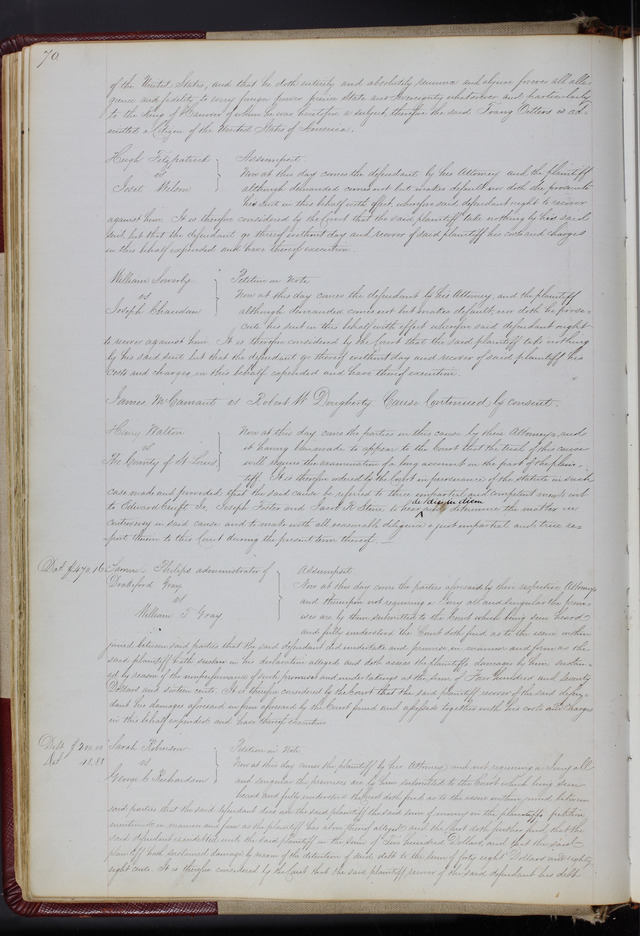 70
of the United States, and that he doth entirely and absolutely renounce and abjure forever all alle-
giance and fidelity to every foreign power prince State and Sovereignty whatsoever and particularly
to the King of Hanover of whom he was heretofore a subject, therefore the said Franz Ortless is ad-
mitted a Citizen of the United States of America.
Hugh Fitzpatrick } Assumpsit
vs Now at this day comes the defendant by his Attorney and the plaintiff
Jesse Wilson although demanded comes not but makes default, nor doth he prosecute
his suit in this behalf with effect wherefore said defendant ought to recover
against him. It is therefore considered by the Court that the said plaintiff take nothing by his said
suit but that the defendant go thereof without day and recover of said plaintiff his costs and charges
in this behalf expended and have thereof execution.
William Sowerby } Petition in Note
vs Now at this day comes the defendant by his Attorney, and the plaintiff
Joseph Charden although demanded comes not but makes default, nor doth he prose-
cute his suit in this behalf with effect wherefore said defendant ought
to recover against him. It is therefore considered by the Court that the said plaintiff take nothing
by his said suit but that the defendant go thereof without day and recover of said plaintiff his
costs and charges in this behalf expended and have thereof execution.
James McCamant vs Robert W Dougherty Cause Continued by consent.
Henry Walton } Now at this day come the parties in this cause by their Attorneys, and
vs it having been made to appear to the Court that the trial of this cause
The County of St Louis will require the examination of a long account on the part of the plain-
tiff. It is therefore ordered by the Court in pursuance of the statute in such
case made and provided that the said cause be referred to three impartial and competent men to wit
to Edward Croft Jr, Joseph Foster and Jacob R Stine to hear
de die in diem
and determine the matter in
controversy in said cause and to make with all reasonable diligence a just impartial and true re-
port thereon to this Court during the present term thereof.
Dat $470.16 Samuel Philips administrator of } Assumpsit
Drakeford Gray Now at this day come the parties aforesaid by their respective Attorneys
vs and thereupon not requiring a Jury all and singular the prem-
William T Gray ises are by them submitted to the Court which being seen heard
and fully understood the Court doth find as to the issue within
joined between said parties that the said defendant did undertake and promise in manner and form as the
said plaintiff hath in his declaration alleged and doth assess the plaintiffs damages by him sustain-
ed by reason of the nonperformance of such promises and undertakings at the sum of Four hundred and Seventy
Dollars and sixteen cents. It is therefore considered by the Court that the said plaintiff recover of the said defen-
dant his damages aforesaid in form aforesaid by the Court found and assessed together with his costs and charges
in this behalf expended and have thereof execution
Debt $200.00 Sarah Robinson } Petition in Note
Dat 48.88 vs Now at this day comes the plaintiff by his Attorney and not requiring a Jury all
George C Richardson and singular the premises are by them submitted to the Court which being seen
heard and fully understood the Court doth find as to the issue within joined between
said parties that the said defendant does owe the said plaintiff the said sum of money in the plaintiffs petition
mentioned in manner and form as the plaintiff has above thereof alleged and the Court doth further find, that the
said defendant is indebted unto the said plaintiff in the sum of Two hundred Dollars, and that the said
plaintiff hath sustained damage by reason of the detention of said debt to the sum of forty eight Dollars and eighty
eight cents. It is therefore considered by the Court that the said plaintiff recover of the said defendant his debt